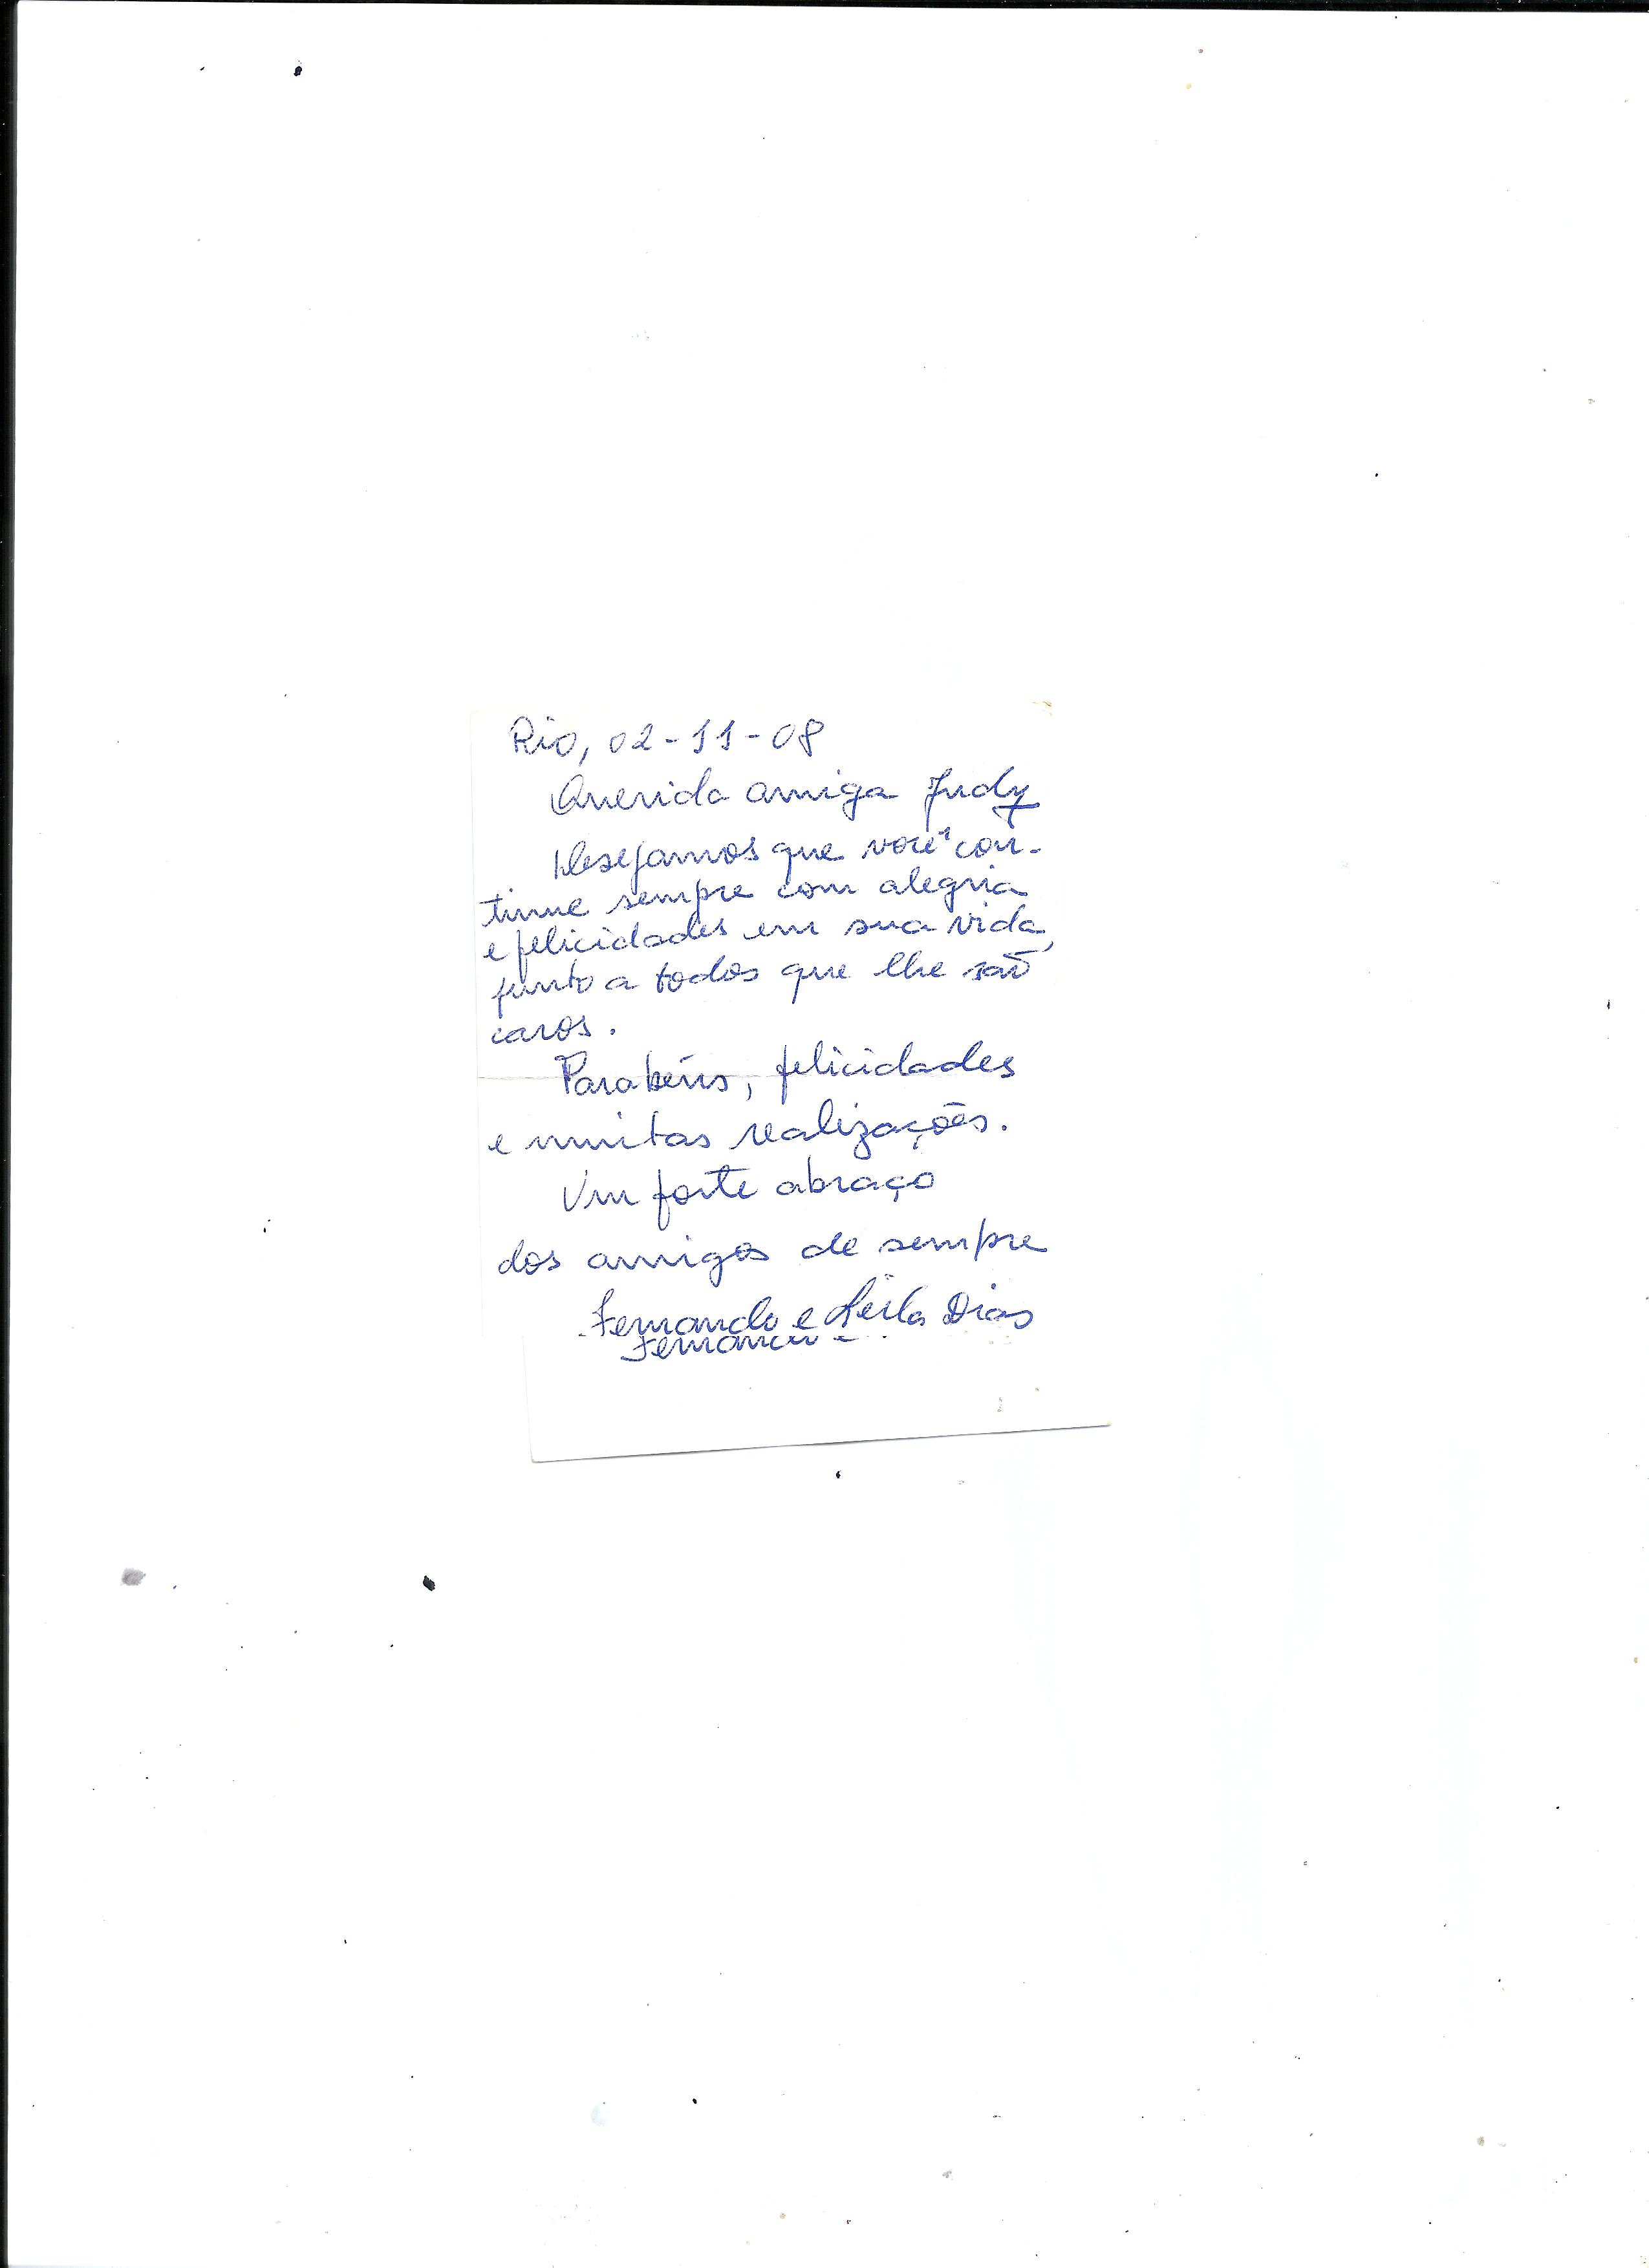 Rio, 02-11-08
Querida amiga Judy
Desejamos que você con-
tinue sempre com alegria
e felicidades em sua vida,
junto a todos que lhe são
caros.
Parabéns, felicidades
e muitas realizações.
Um forte abraço
dos amigos de sempre
Fernando e Leila Dias